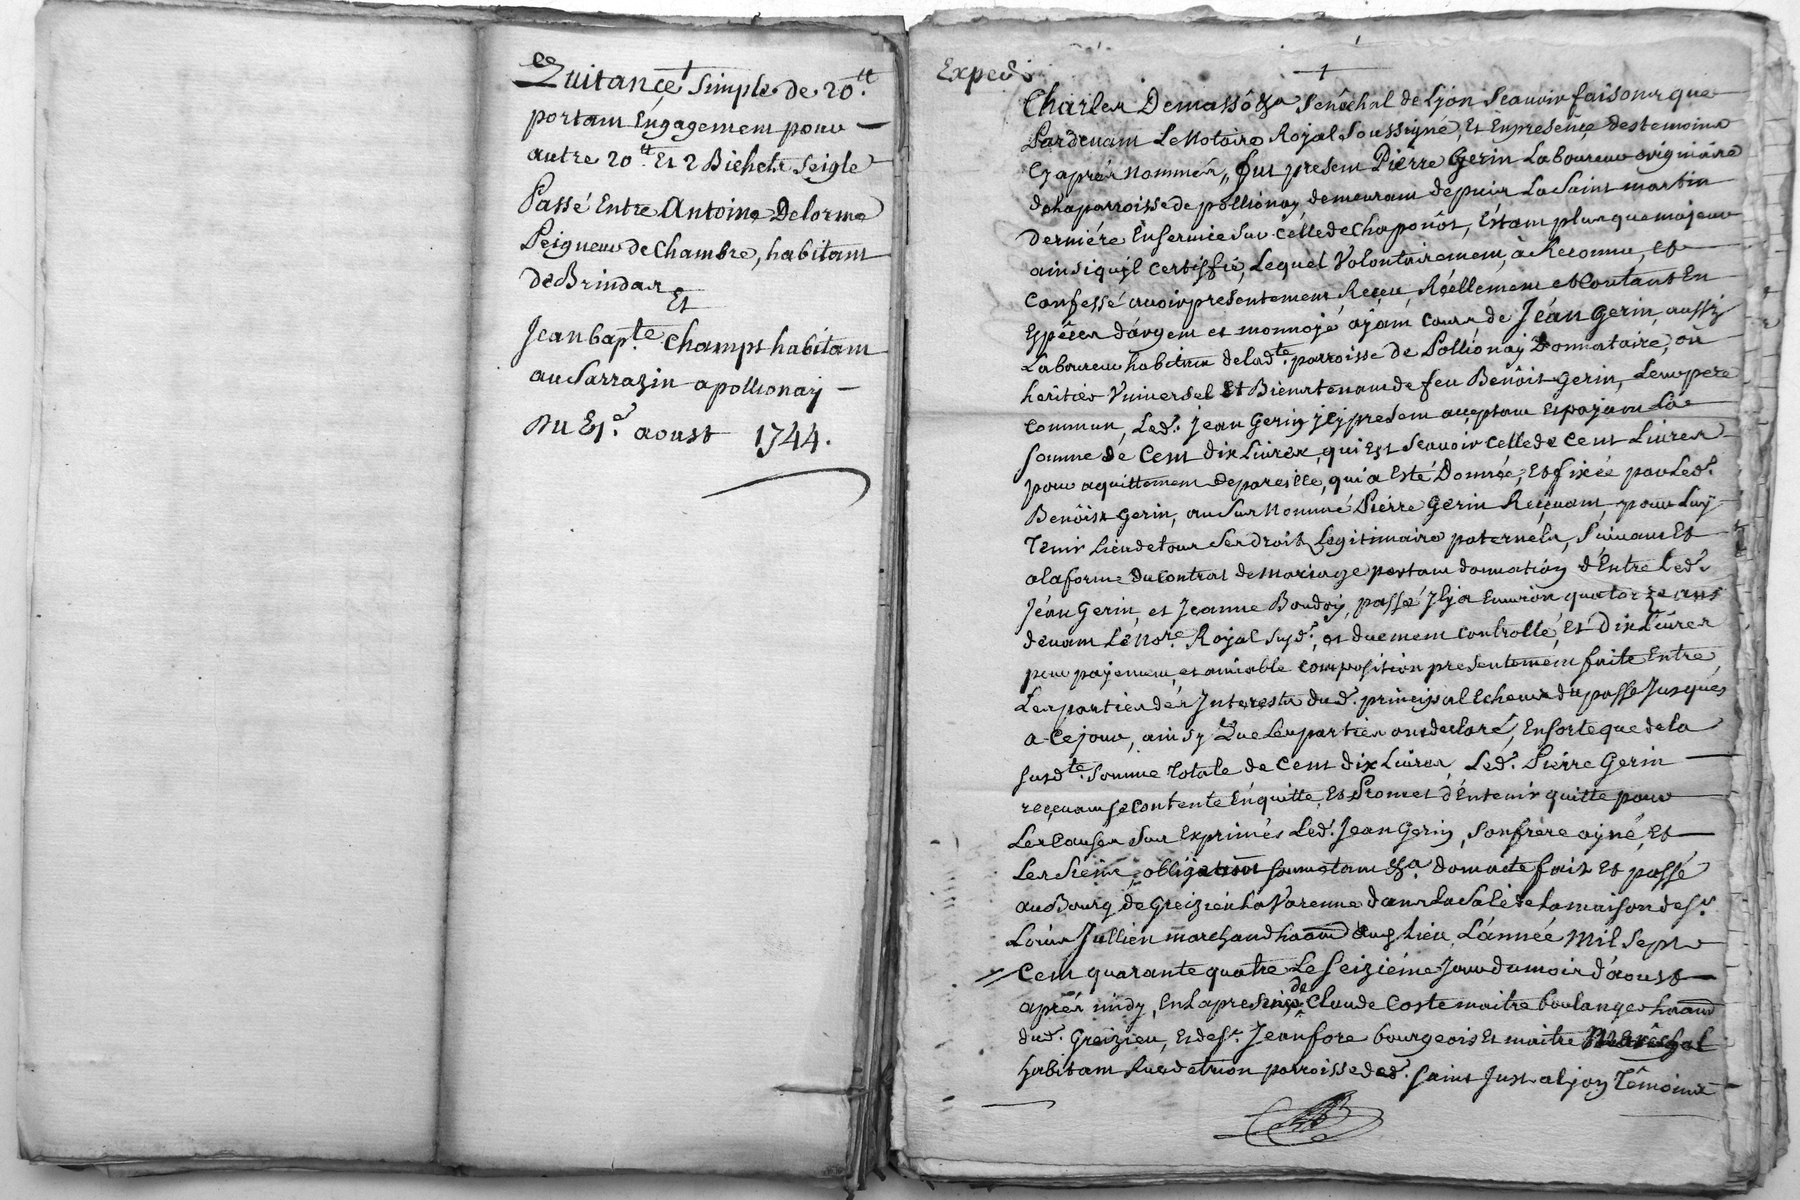 Quitance simple de 20.tt
portant Engagement pour
autre 20.tt Et 2 Bichets seigle
Passé Entre Antoine Delorme
Peigneur de Chambre, habitant
de Brindas
Et
Jean bap.te Champt habitant
au Sarrazin a pollionay
Du 21.e aoust 1744.
Exped.
Charles Demassô &a Senéchal de Lyon Scavoir faisons que
Pardevant Le Notaire Royal Soussigné, Et En presençe des temoins
Cy aprés Nommés, fut present Pierre Gerin Laboureur originaire
de la parroisse de pollionay demeurant depuis La Saint martin
derniére En fermie Sur Célle de Chaponôst, Estant plus que majeur
ainsi qu'il certiffie, Lequel Volontairement, à Reconnu, Et
Confessé avoir presentement Reçeu, Réellement et Contant En
Espêces d'argent et monnoyé ayant Cours de Jéan Gerin, aussi
Laboureur habitant de lad.te parroisse de Pollionay Donnataire, où
heritier Universel Et Bien tenant de feu Benôist Gerin, Leur pere
Commun, Led. jean Gerin jcy present acçeptant Et payant La
somme de Cent dix Livres, qui Est Scavoir Celle de Cent Livres
pour aquittement de pareille, qui a Esté Donnée, Et fixée par Led.
Benôist Gerin, au Sus Nommé Pierre Gerin Reçevant, pour Luy
Tenir Lieu de tous Ses droits Legitimaire paternels, Suivant Et
a la forme du Contrat de Mariage portant donnation d'Entre Led.
Jéan Gerin, et Jeanne Boudoy, passé Jl y a Environ quatorze ans
devant Le No.re Royal Susd. et duement Controllé, Et Dix Livres
pour payement, et amiable Composition presentement faite Entre
Les parties dés Jnterests dud. principal Echeus du passé Jusqués
a Ce jour, ainsy Que Les parties ont declaré, En sorte que de la
susd.te Somme Totale de Cent dix Livres, Led. Pierre Gerin
reçevant se Contente En quitte, Et Promet d'En tenir quitte pour
Les Causes Sus Exprimés Led. Jean Gerin, Son frère ayné, Et
Les Siens, obligation soumettant &a dont acte fait Et passé
au Bourg de Greizieu La Varenne dans La Sale de La maison de S.r
Loüis Jullien marchand haânt aud. Lieu, L'année Mil Sept
Cent quarante quatre Le Seiziéme Jour du mois d'aoust
aprés midy, En La presençe de Claude Coste maitre boulanger haânt
dud. Greizieu, Et de S.r Jean fore bourgeois Et maitre Marêschal
habitant Rue de trion parroisse de Saint Just a lyon Têmoins